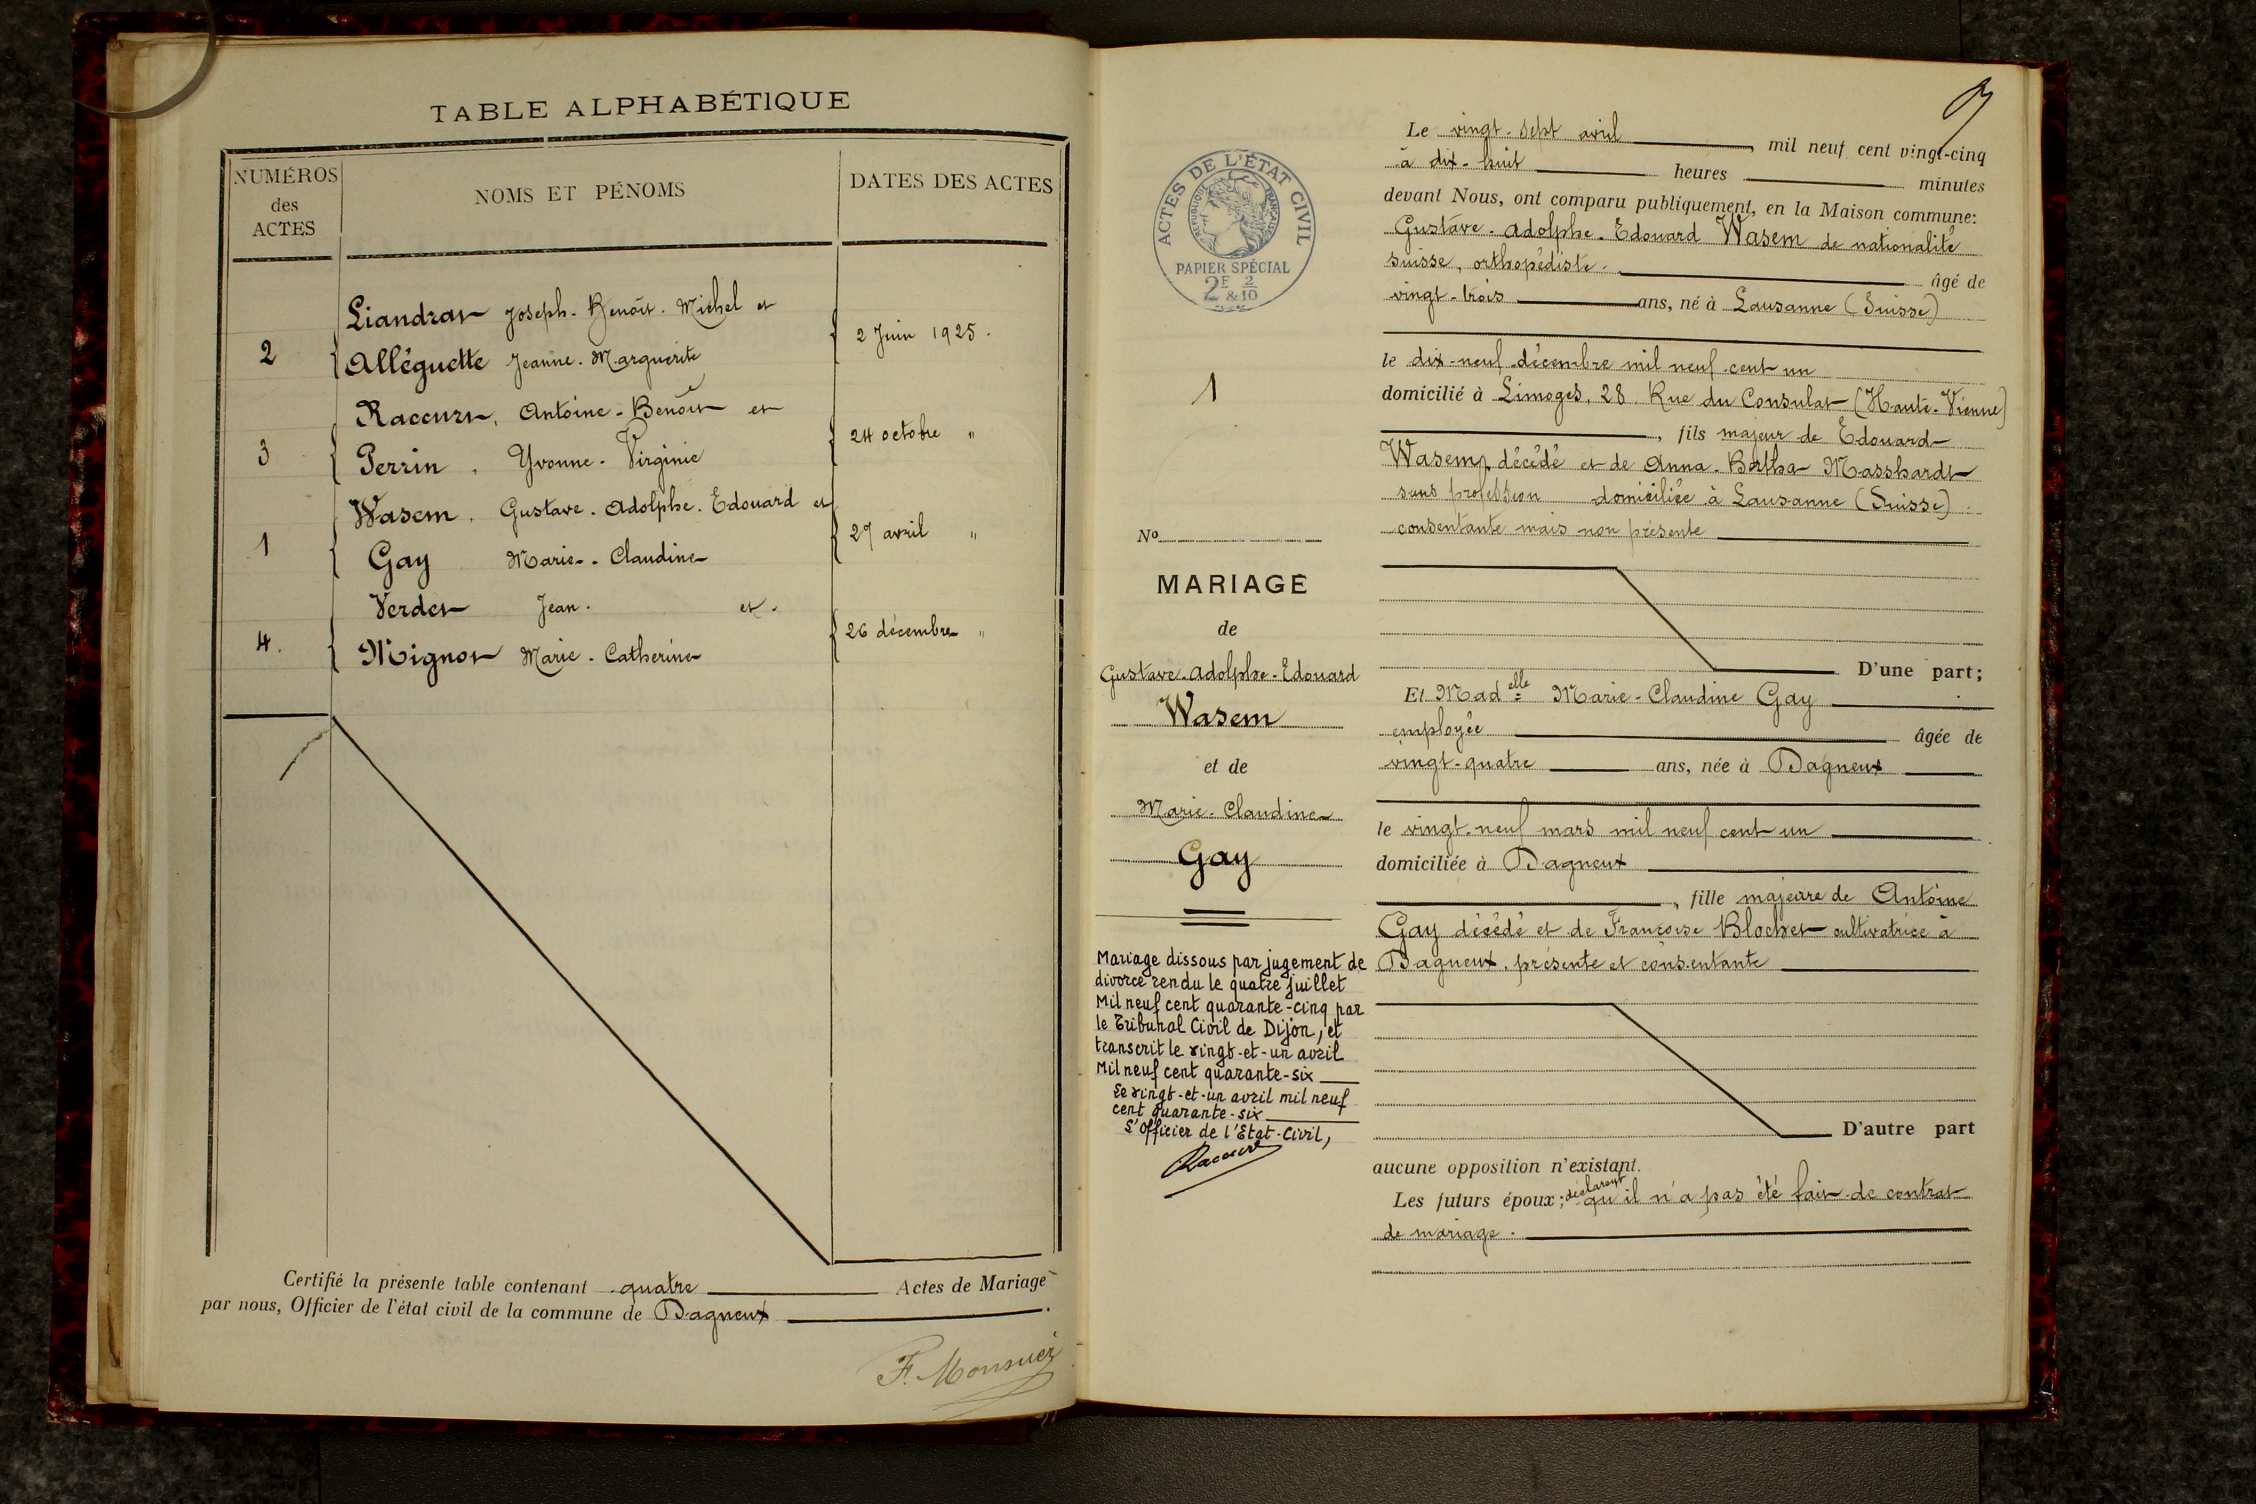 TABLE ALPHABÉTIQUE
NUMÉROS
des
ACTES
NOMS ET PÉNOMS
DATES DES ACTES
Liandrat Joseph-Benoît-Michel et
2 Alléguette Jeanne-Marguerite 2 Juin 1925.
Raccurt, Antoine-Benoît et
3 Perrin, Yvonne-Virginie 24 octobre "
Wasem. Gustave-Adolphe-Edouard et
1 Gay Marie-Claudine 27 avril "
Verdet Jean. et.
4. Mignot Marie-Catherine 26 décembre "
Certifié la présente table contenant quatre Actes de Mariage
par nous, Officier de l'état civil de la commune de Dagneux.
F. Monsuez
ACTES DE L'ÉTAT CIVIL
RÉPUBLIQUE FRANÇAISE
PAPIER SPÉCIAL
2E & 2/10
1
No
MARIAGE
de
Gustave-Adolphe-Edouard
Wasem
et de
Marie-Claudine
Gay
Mariage dissous par jugement de
divorce rendu le quatre juillet
Mil neuf cent quarante-cinq par
le Tribunal Civil de Dijon, et
transcrit le vingt-et-un avril
Mil neuf cent quarante-six
Le vingt-et-un avril mil neuf
cent quarante-six
L'Officier de l'Etat-Civil,
Raccurt
Le vingt-sept avril, mil neuf cent vingt-cinq
à dix-huit heures minutes
devant Nous, ont comparu publiquement, en la Maison commune:
Gustave-Adolphe-Edouard Wasem de nationalité
suisse, orthopédiste. âgé de
vingt-trois ans, né à Lausanne (Suisse)
le dix-neuf décembre mil neuf cent un
domicilié à Limoges, 28 Rue du Consulat (Haute-Vienne)
, fils majeur de Edouard
Wasem, décédé et de Anna-Bertha Masshardt
sans profession domiciliée à Lausanne (Suisse)
consentante mais non présente
D'une part;
Et Madelle Marie-Claudine Gay
employée âgée de
vingt-quatre ans, née à Dagneux
le vingt-neuf mars mil neuf cent un
domiciliée à Dagneux
, fille majeure de Antoine
Gay décédé et de Françoise Blochet cultivatrice à
Dagneux, présente et consentante
D'autre part
aucune opposition n'existant.
Les futurs époux; déclarent qu'il n'a pas été fait de contrat
de mariage.